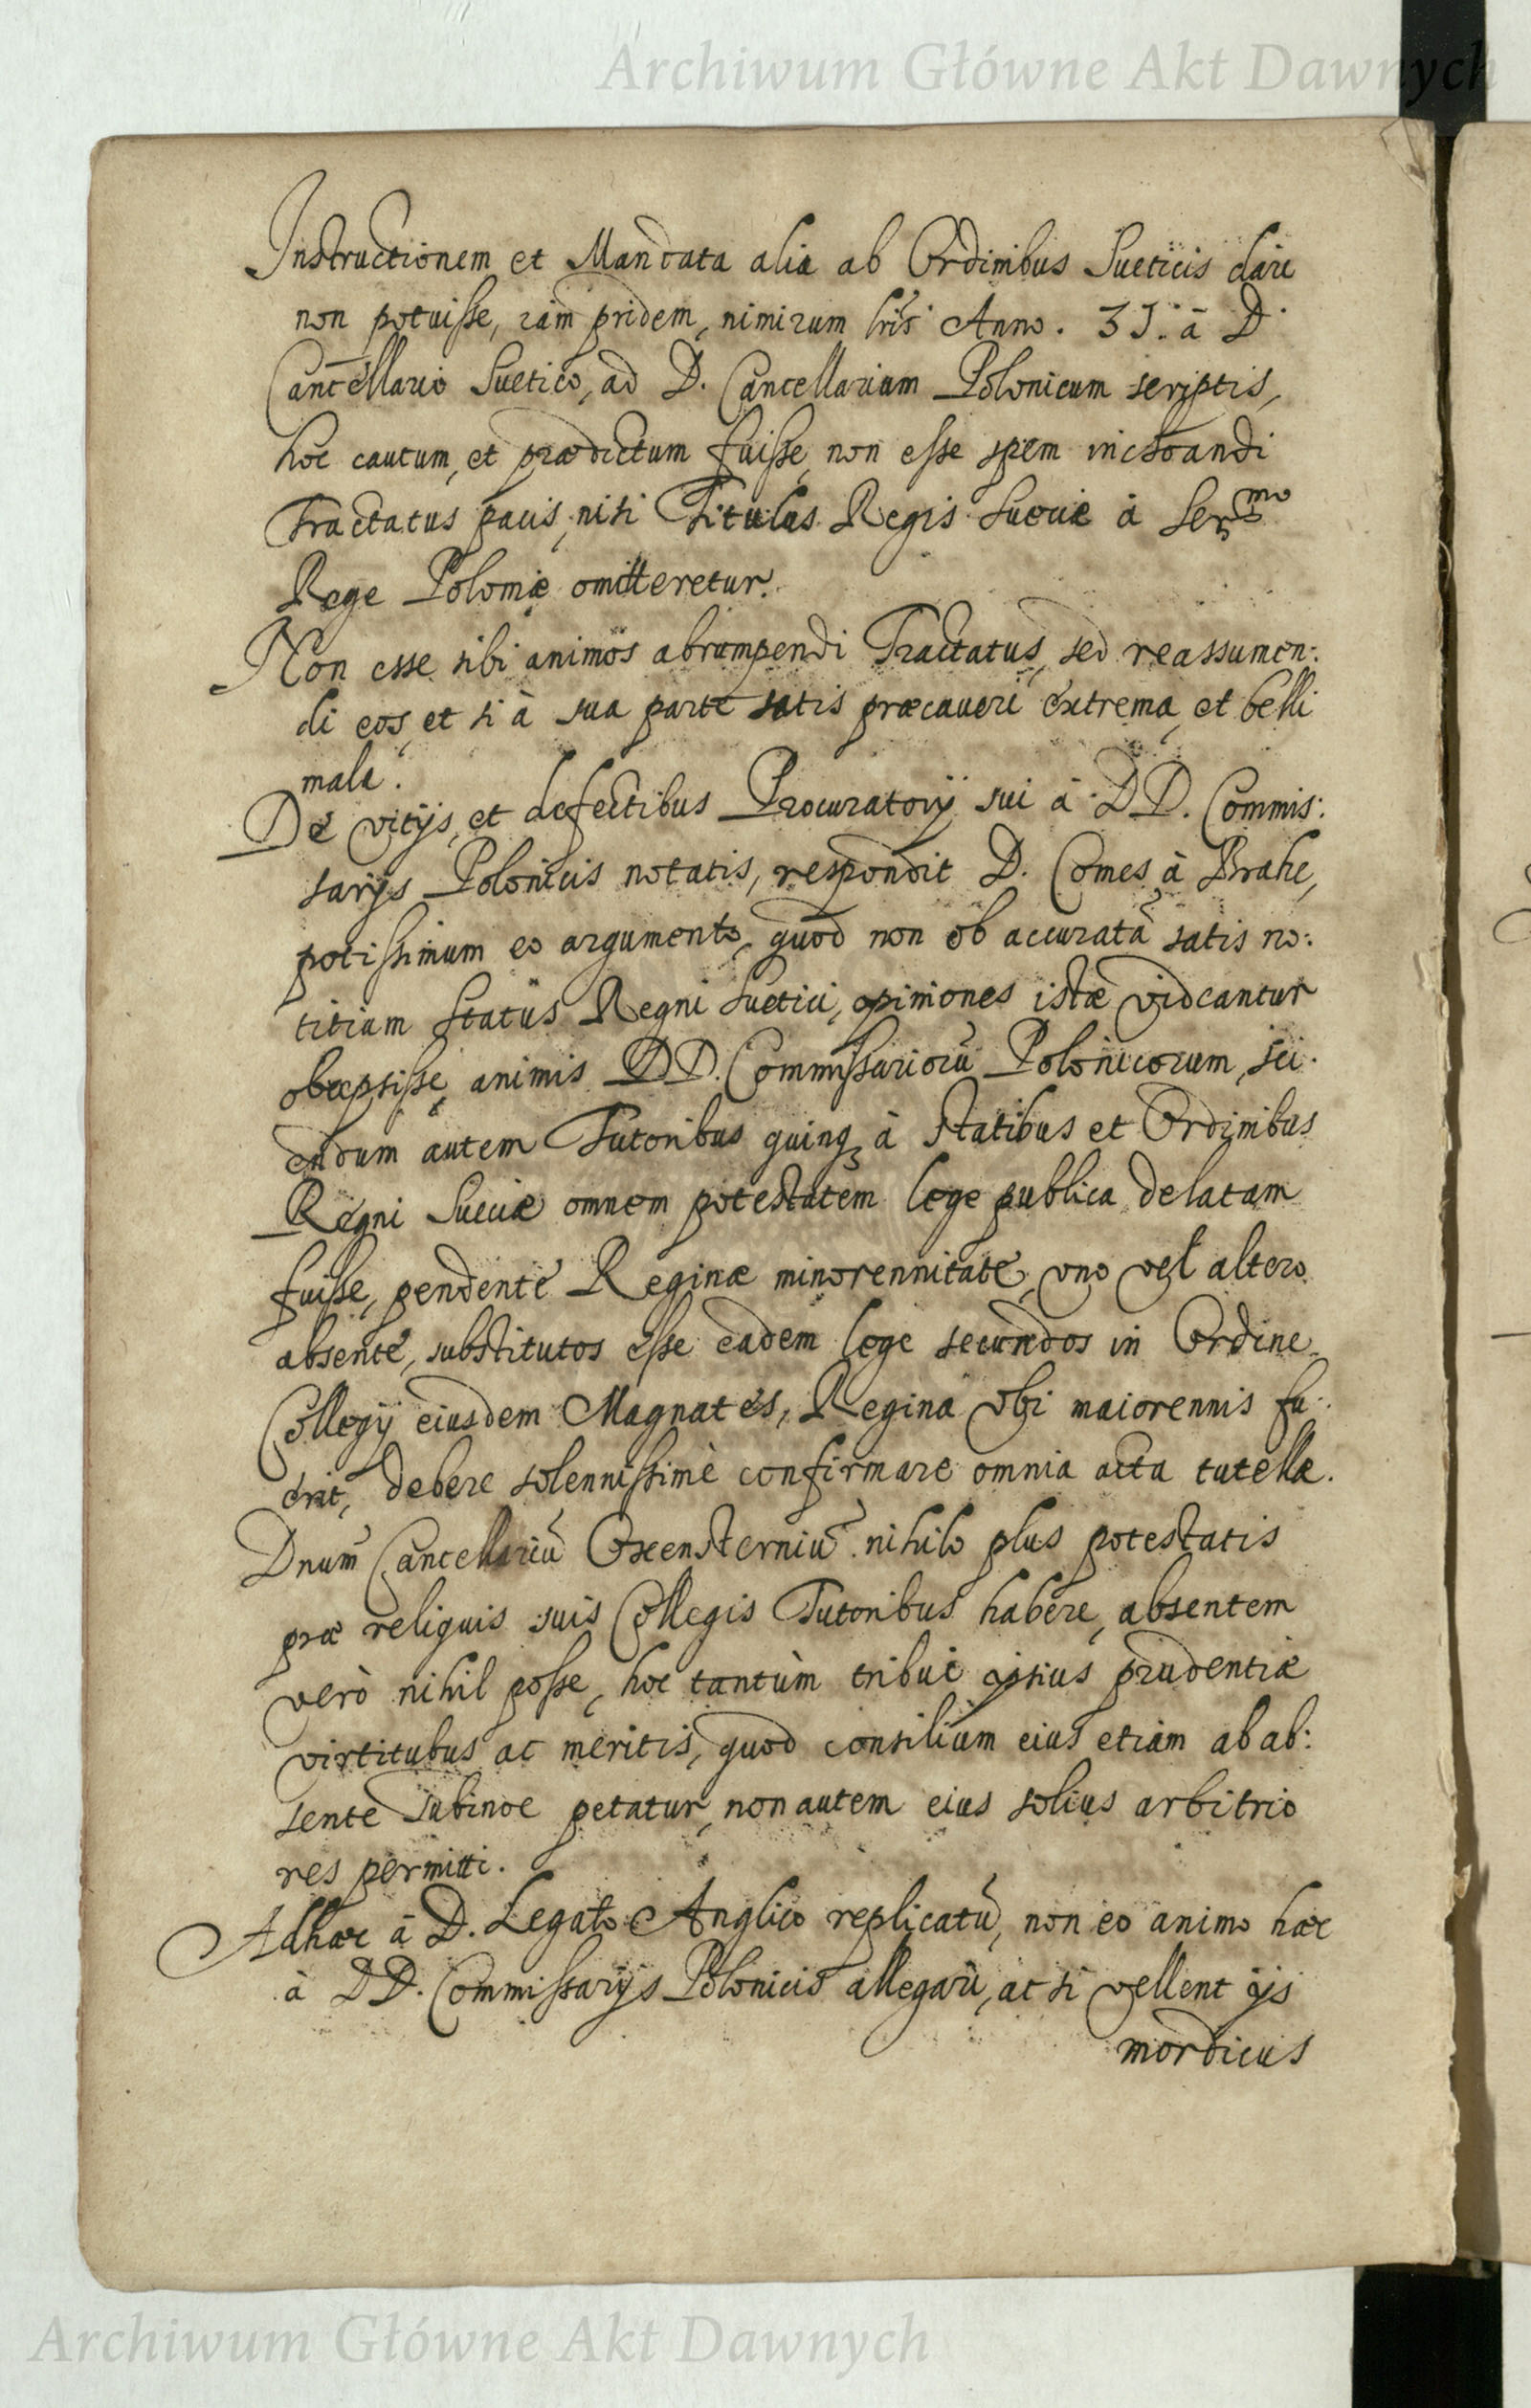 Archiwum Główne Akt Dawnych
Instructionem et Mandata alia ab Ordinibus Sueticis dari
non potuisse, iam pridem, nimirum lris Anno. 35. à D.
Cancellario Suetico, ad D. Cancellarium Polonicum scriptis,
hoc cautum, et prædictum fuisse, non esse spem inchoandi
Tractatus pacis, nisi Titulus Regis Sueciæ à Ser^mo
Rege Poloniæ omitteretur.
Non esse sibi animos abrumpendi Tractatus, sed reassumen:
di eos, et si à sua parte satis præcaveri extrema, et belli
mala.
De vitijs, et defectibus Procuratorij sui à DD. Commis:
sarijs Polonicis notatis, respondit D. Comes à Brahe,
potissimum eo argumento, quod non ob accuratā satis no:
titiam Status Regni Suetici, opiniones istæ videantur
obrepsisse animis DD. Commissariorū Polonicorum, sci:
endum autem Tutoribus quinq; à Statibus et Ordinibus
Regni Sueciæ omnem potestatem lege publica delatam
fuisse, pendente Reginæ minorennitate, uno vel altero
absente, substitutos esse eadem lege secundos in Ordine
Collegij eiusdem Magnates, Regina ubi maiorennis fu:
erit, debere solennissimè confirmare omnia acta tutellæ.
Dnum Cancellariū Oxensterniū nihilo plus potestatis
præ reliquis suis Collegis Tutoribus habere, absentem
verò nihil posse, hoc tantùm tribui ipsius prudentiæ
virtitubus ac meritis, quod consilium eius etiam ab ab:
sente subinde petatur, non autem eius solius arbitrio
res permitti.
Adhæc à D. Legato Anglico replicatū, non eo animo hæc
à DD. Commissarijs Polonicis allegari, ac si vellent ijs
mordicus
Archiwum Główne Akt Dawnych